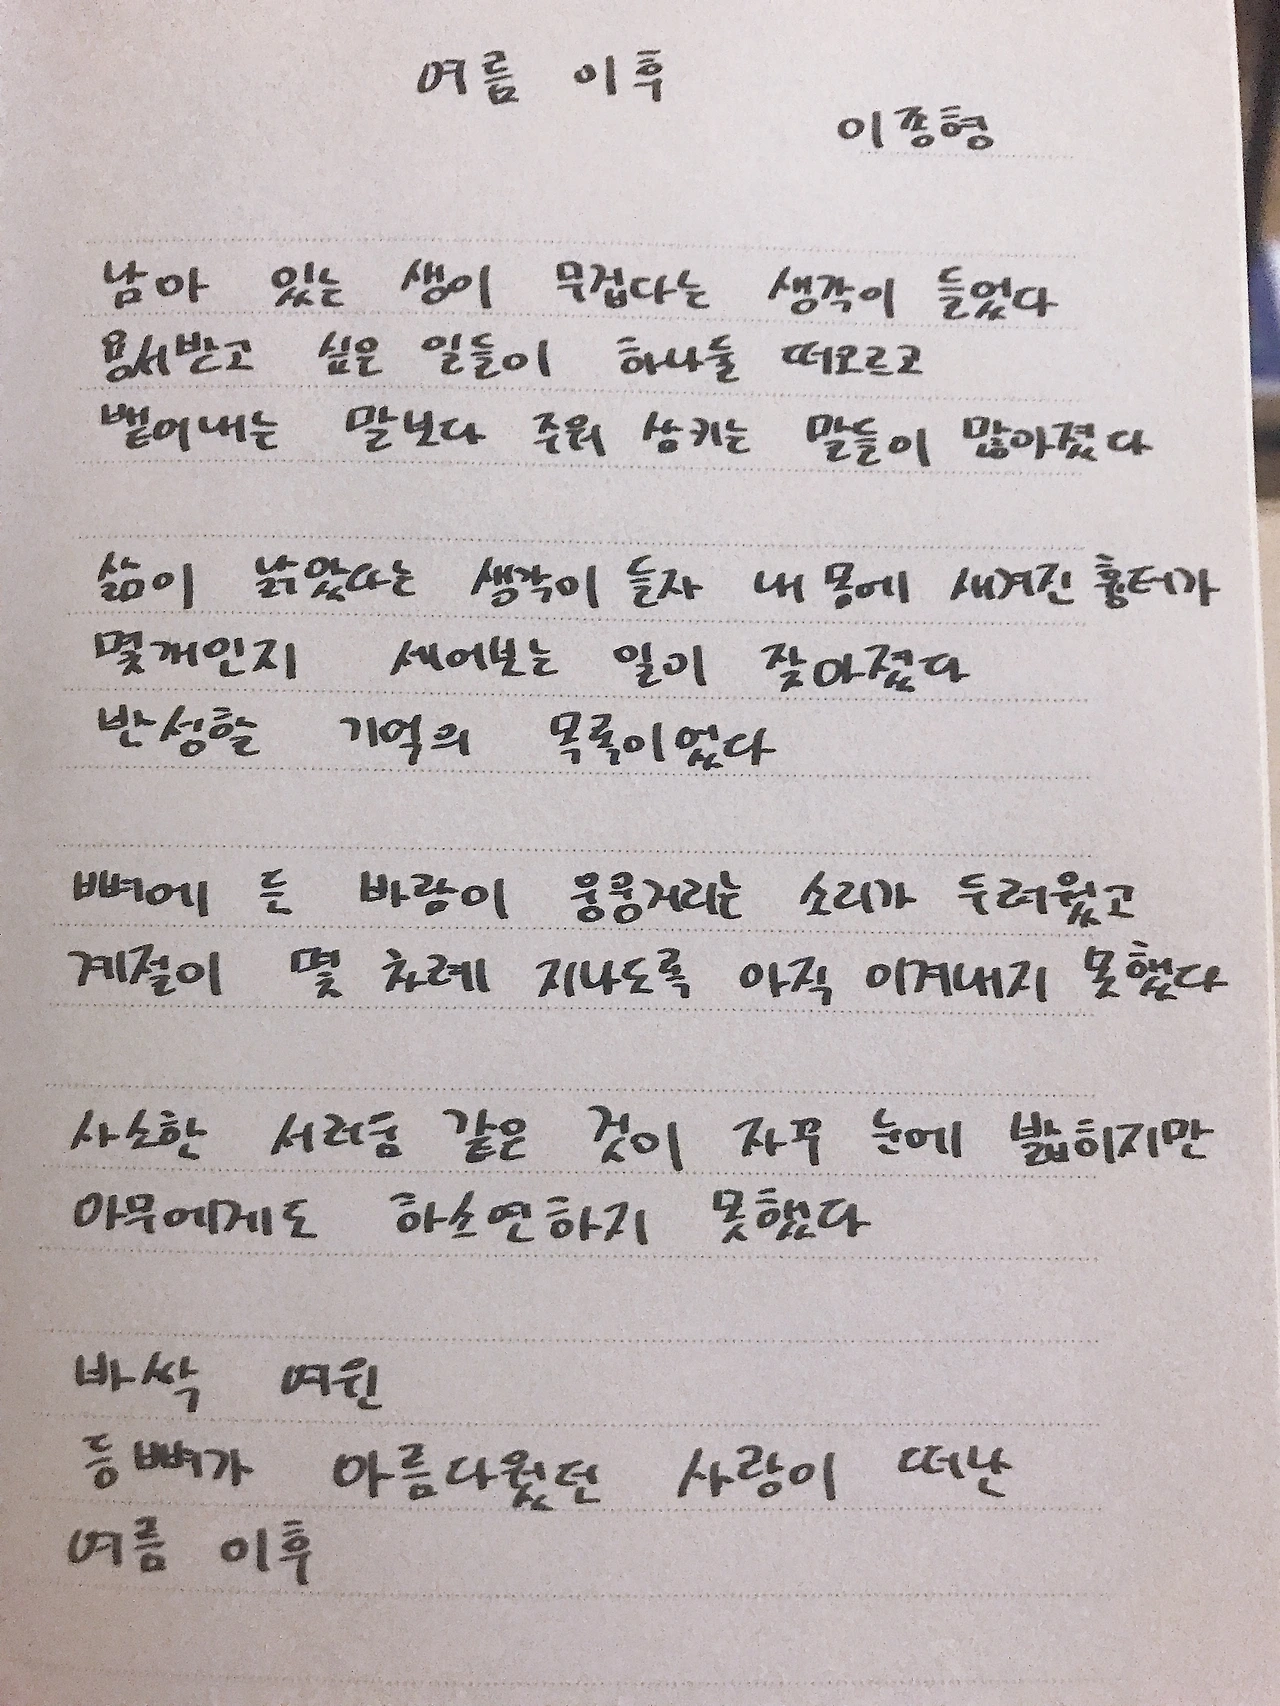 여름 이후
이종형
남아 있는 생이 무겁다는 생각이 들었다
용서받고 싶은 일들이 하나둘 떠오르고
뱉어내는 말보다 주워 삼키는 말들이 많아졌다
삶이 낡았다는 생각이 들자 내 몸에 새겨진 흉터가
몇개인지 세어보는 일이 잦아졌다
반성할 기억의 목록이었다
뼈에 든 바람이 웅웅거리는 소리가 두려웠고
계절이 몇 차례 지나도록 아직 이겨내지 못했다
사소한 서러움 같은 것이 자꾸 눈에 밟히지만
아무에게도 하소연하지 못했다
바싹 여윈
등뼈가 아름다웠던 사랑이 떠난
여름 이후